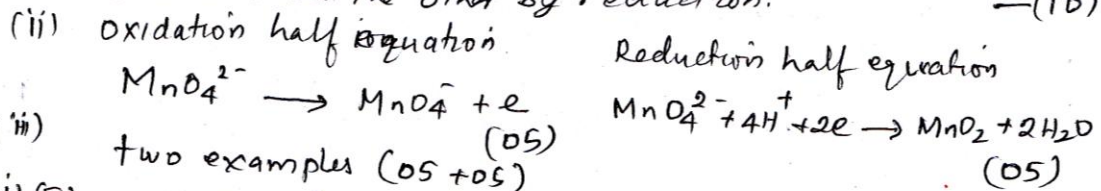 —(10)
(ii) Oxidation half equation
Reduction half equation
MnO₄²⁻ ⟶ MnO₄⁻ + e
(05)
MnO₄²⁻ + 4H⁺ + 2e ⟶ MnO₂ + 2H₂O
(05)
iii)
two examples (05 + 05)